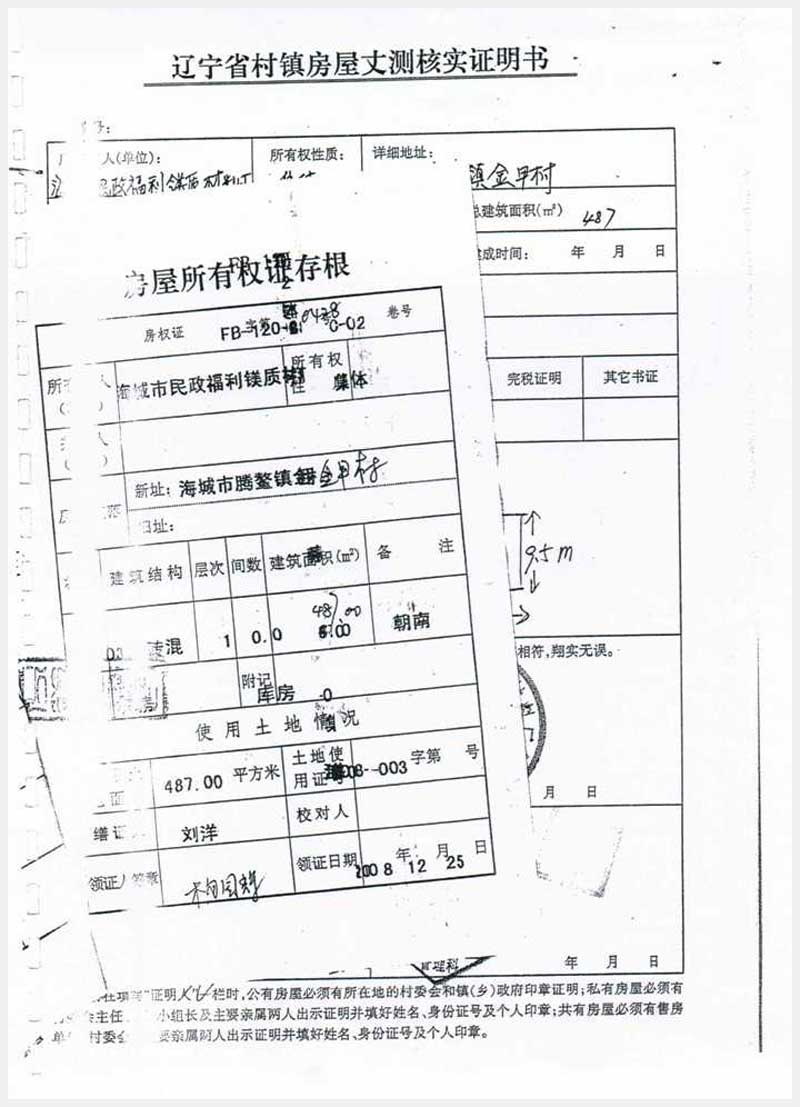 辽宁省村镇房屋丈测核实证明书
人(单位):
所有权性质:
详细地址:
民政福利镁质材料
镇金甲村
总建筑面积(㎡) 487
建成时间: 年 月 日
完税证明 其它书证
9.5m
相符,翔实无误。
月 日
房屋所有权证存根
房权证 FB-120- 字第 0438 C-02 卷号
所有 人
海城市民政福利镁质材
所有权性
集体
新址: 海城市腾鳌镇金甲村
旧址:
建筑结构 层次 间数 建筑面积(㎡) 备 注
混 1 0.0 487.00 朝南
附记
库房
使用土地情况
面 487.00 平方米
土地使用证号 -003 字第 号
缮证 刘洋
校对人
领证人签章
领证日期 2008 年 12 月 25 日
管理科
年 月 日
证明 栏时,公有房屋必须有所在地的村委会和镇(乡)政府印章证明;私有房屋必须有
会主任 小组长及主要亲属两人出示证明并填好姓名、身份证号及个人印章;共有房屋必须有售房
单 村委会 要亲属两人出示证明并填好姓名、身份证号及个人印章。